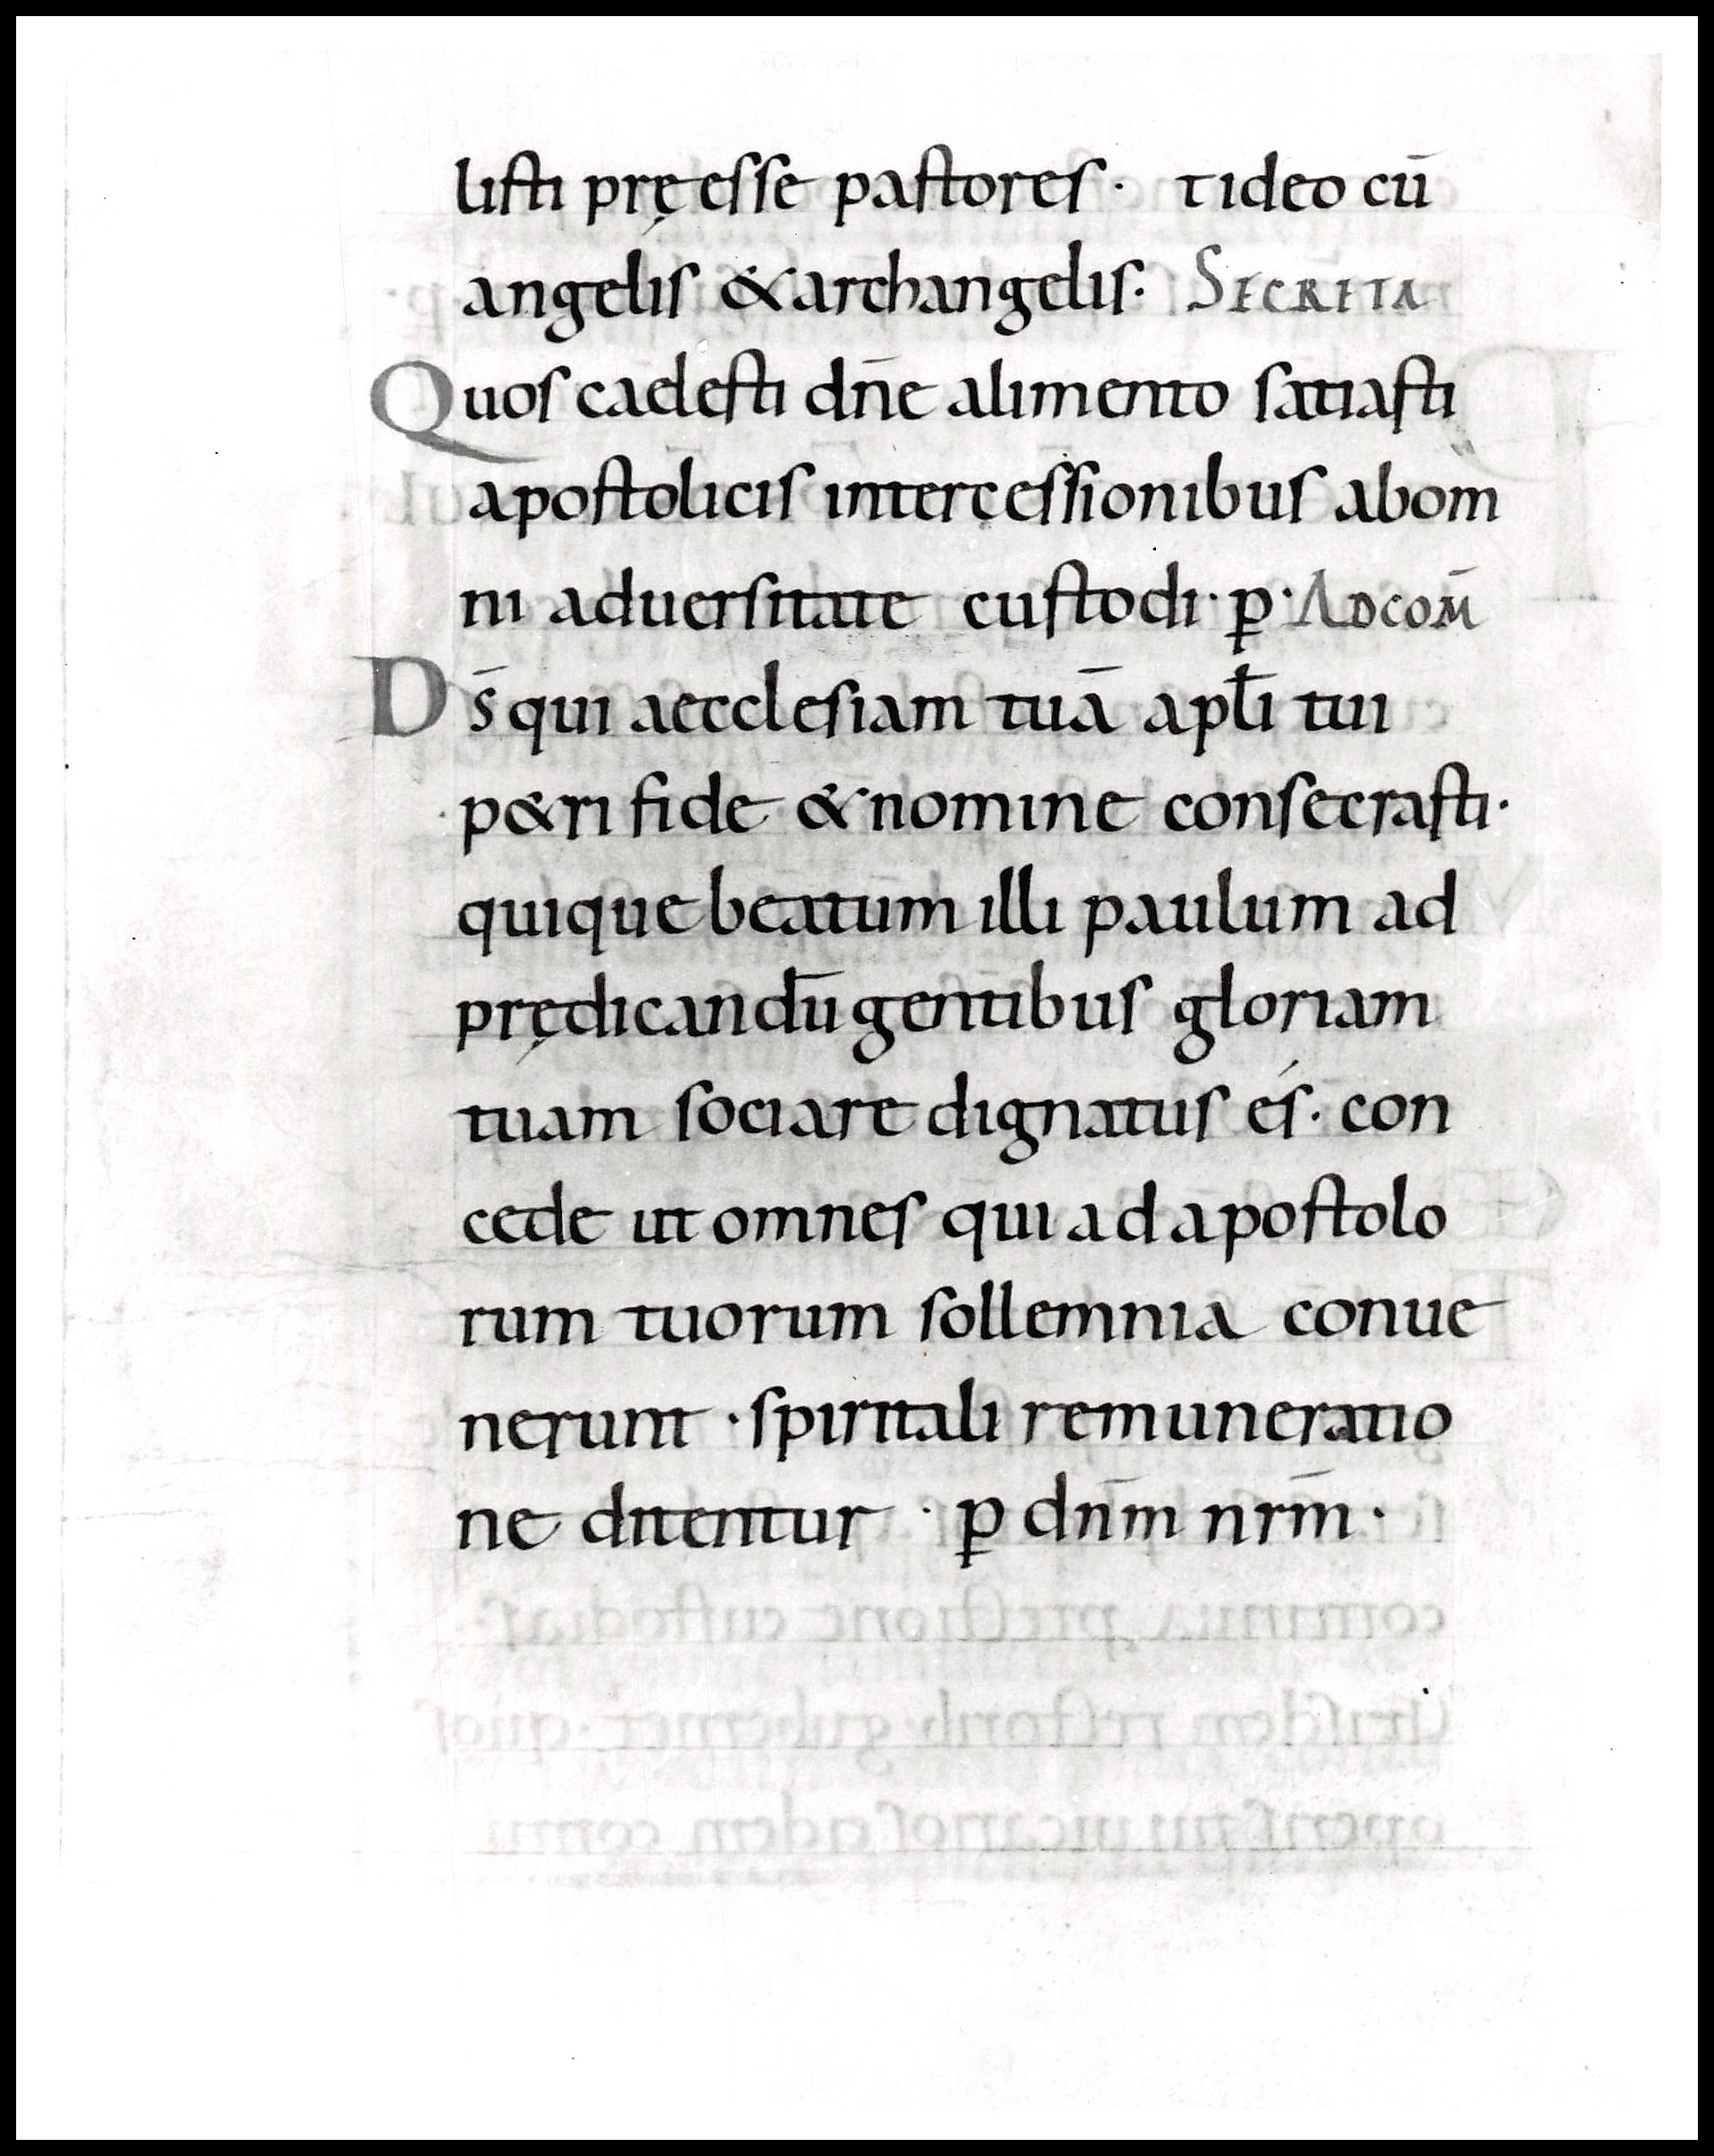 listi pręesse pastores· tideo cū
angelis & archangelis· SECRETA
Quos caelesti dn̄e alimento satiasti
apostolicis intercessionibus abom
ni aduersitate custodi· ꝑ· ADCOM̄
Ds̄ qui aecclesiam tuā apłi tui
p&ri fide & nomine consecrasti·
quique beatum illi paulum ad
prędicandū gentibus gloriam
tuam sociare dignatus és· con
cede ut omnes qui ad apostolo
rum tuorum sollemnia conue
nerunt · spiritali remuneratio
ne ditentur · ꝑ dnm̄ nrm̄ ·